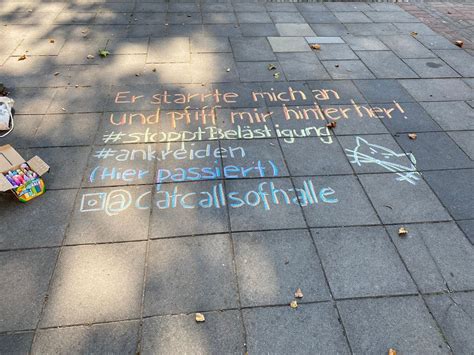 Er starrte mich an
und pfiff mir hinterher!
#stopptBelästigung
#ankreiden
(Hier passiert)
@catcallsofhalle